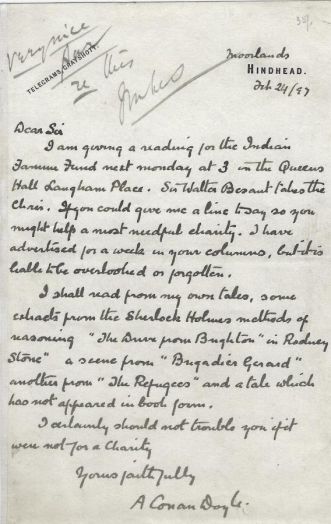 35/
very nice
re this
TELEGRAMS, GRAYSHOTT.
Moorlands
HINDHEAD.
Feb 24/97
Dear Sir
I am giving a reading for the Indian
Famine Fund next monday at 3 in the Queens
Hall Langham Place. Sir Walter Besant takes the
Chair. If you could give me a line to say so you
might help a most needful charity. I have
advertised for a week in your columns, but it is
liable to be overlooked or forgotten.
I shall read from my own tales, some
extracts from the Sherlock Holmes methods of
reasoning "The Drive from Brighton" in Rodney
Stone" a scene from "Brigadier Gerard"
another from "The Refugees" and a tale which
has not appeared in book form.
I certainly should not trouble you if it
were not for a Charity
Yours faithfully
A Conan Doyle.